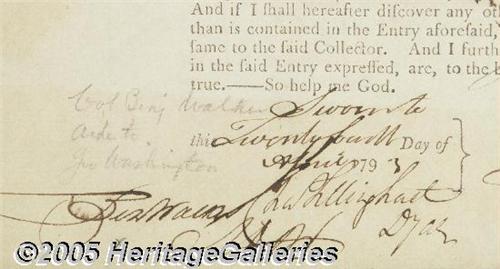 And if I shall hereafter discover any ot
than is contained in the Entry aforesaid,
same to the said Collector. And I furth
in the said Entry expressed, are, to the b
true.——So help me God.
Col Benj Walker
Aide to
Washington
Sworn to
this Twenty fourth Day of
April 1793
Benj Walker
©2005 HeritageGalleries